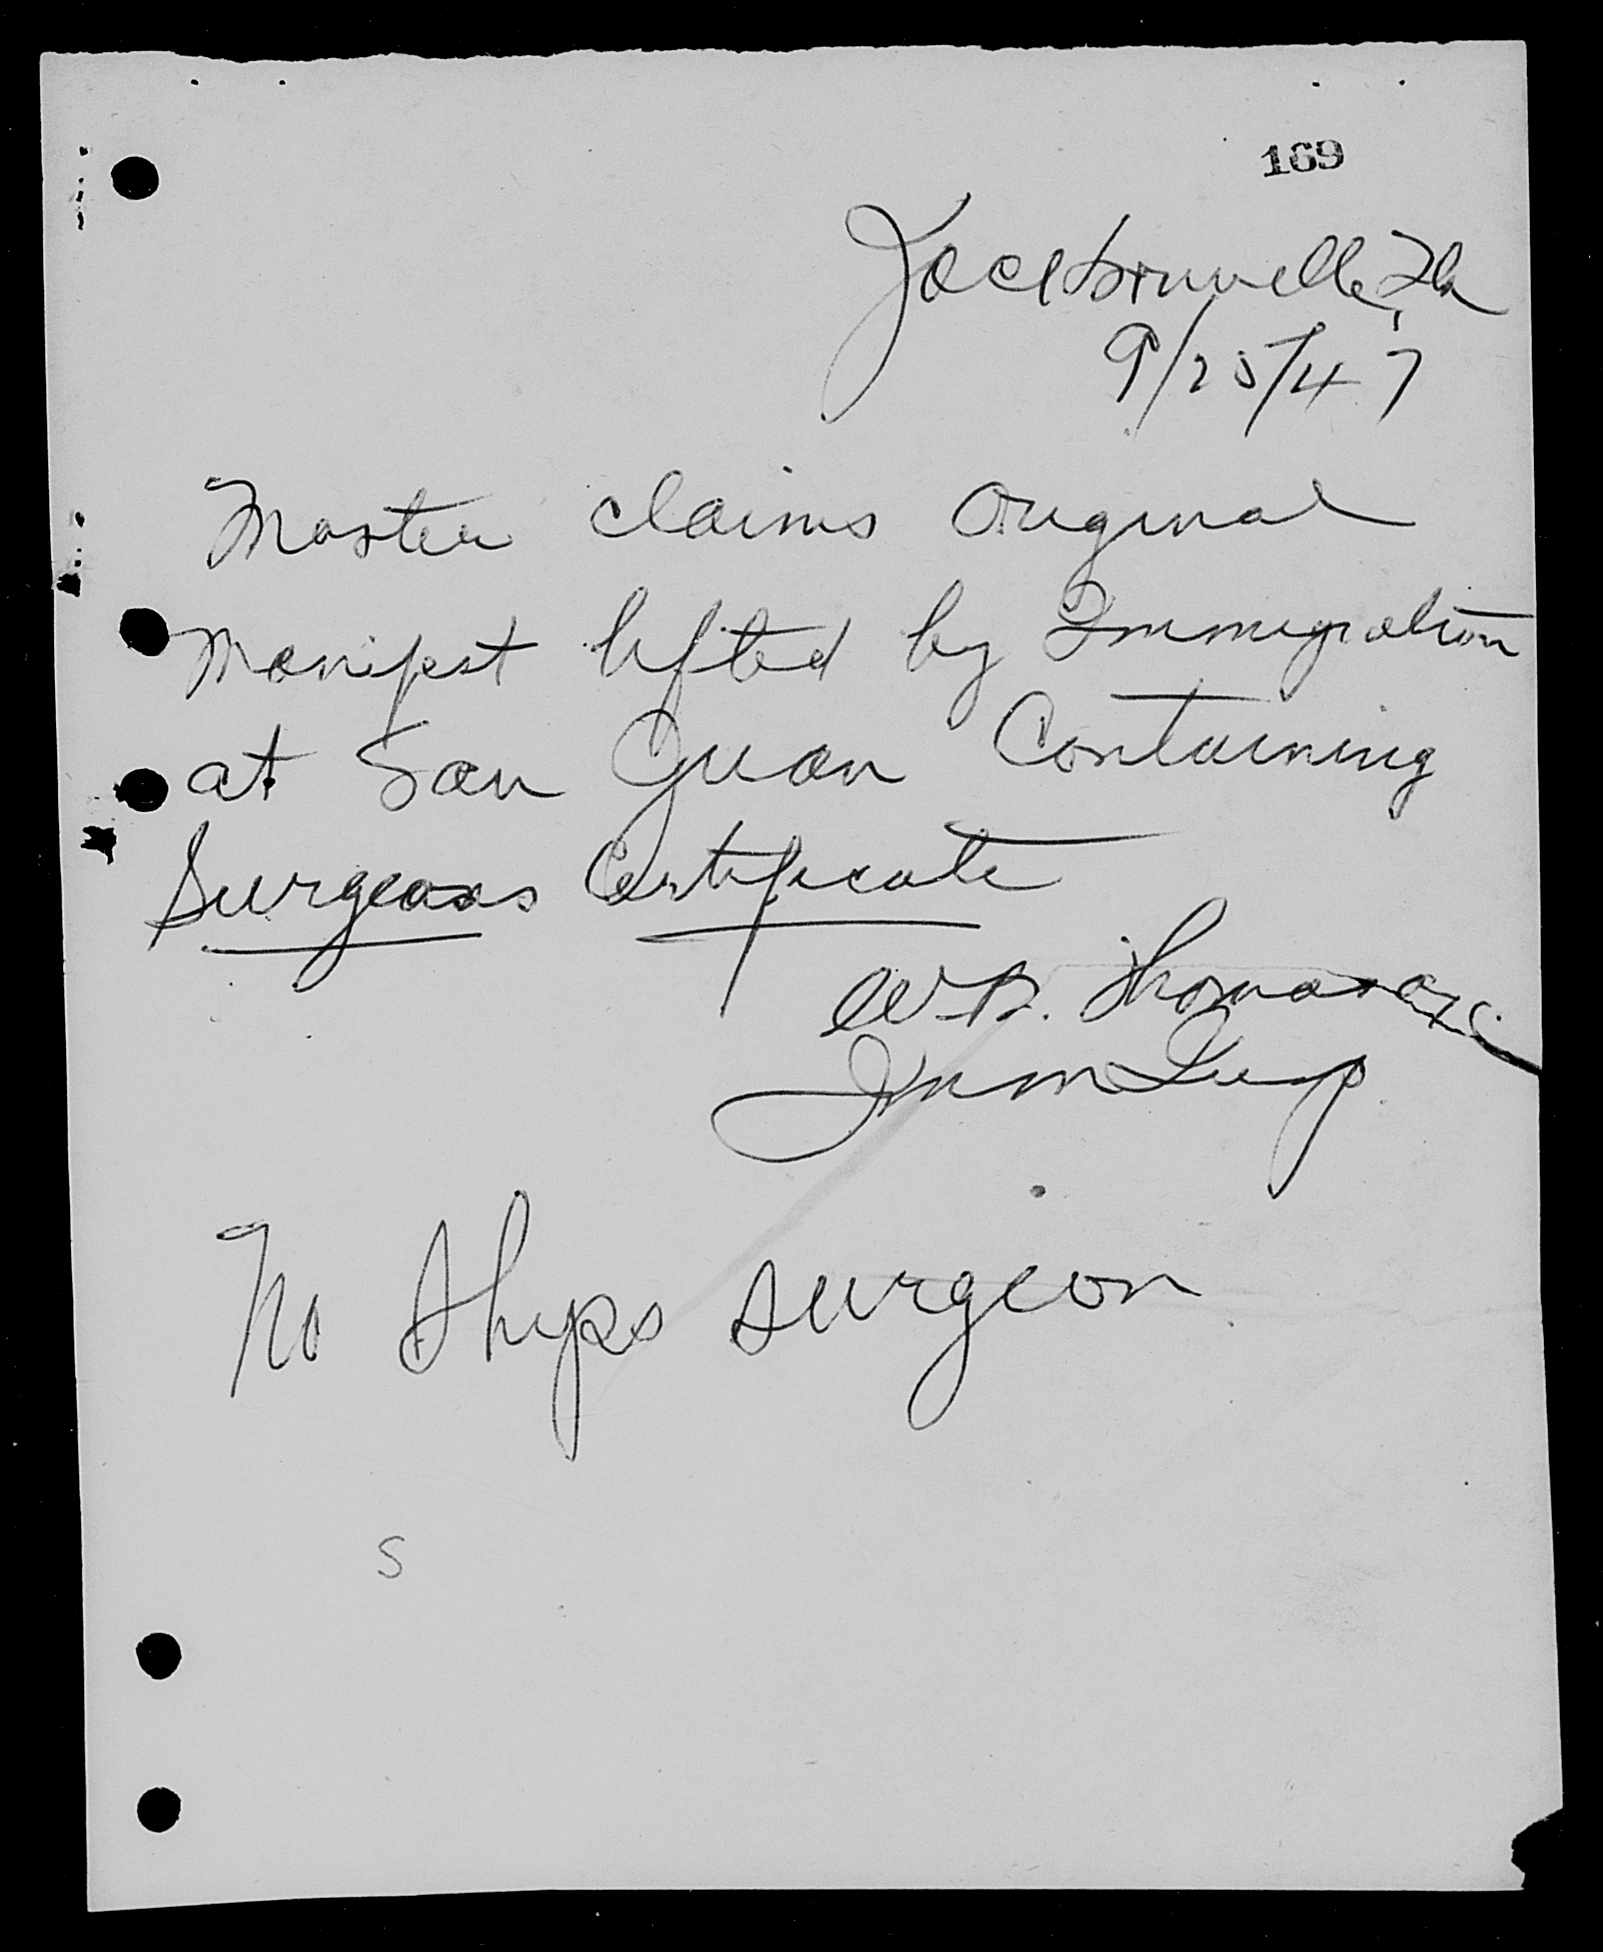 169
Jacksonville, Fla
9/25/47
Master claims original
Manifest lifted by Immigration
at San Juan Containing
Surgeons Certificate
W B. Thomas
Imm Insp
No Ships surgeon
S